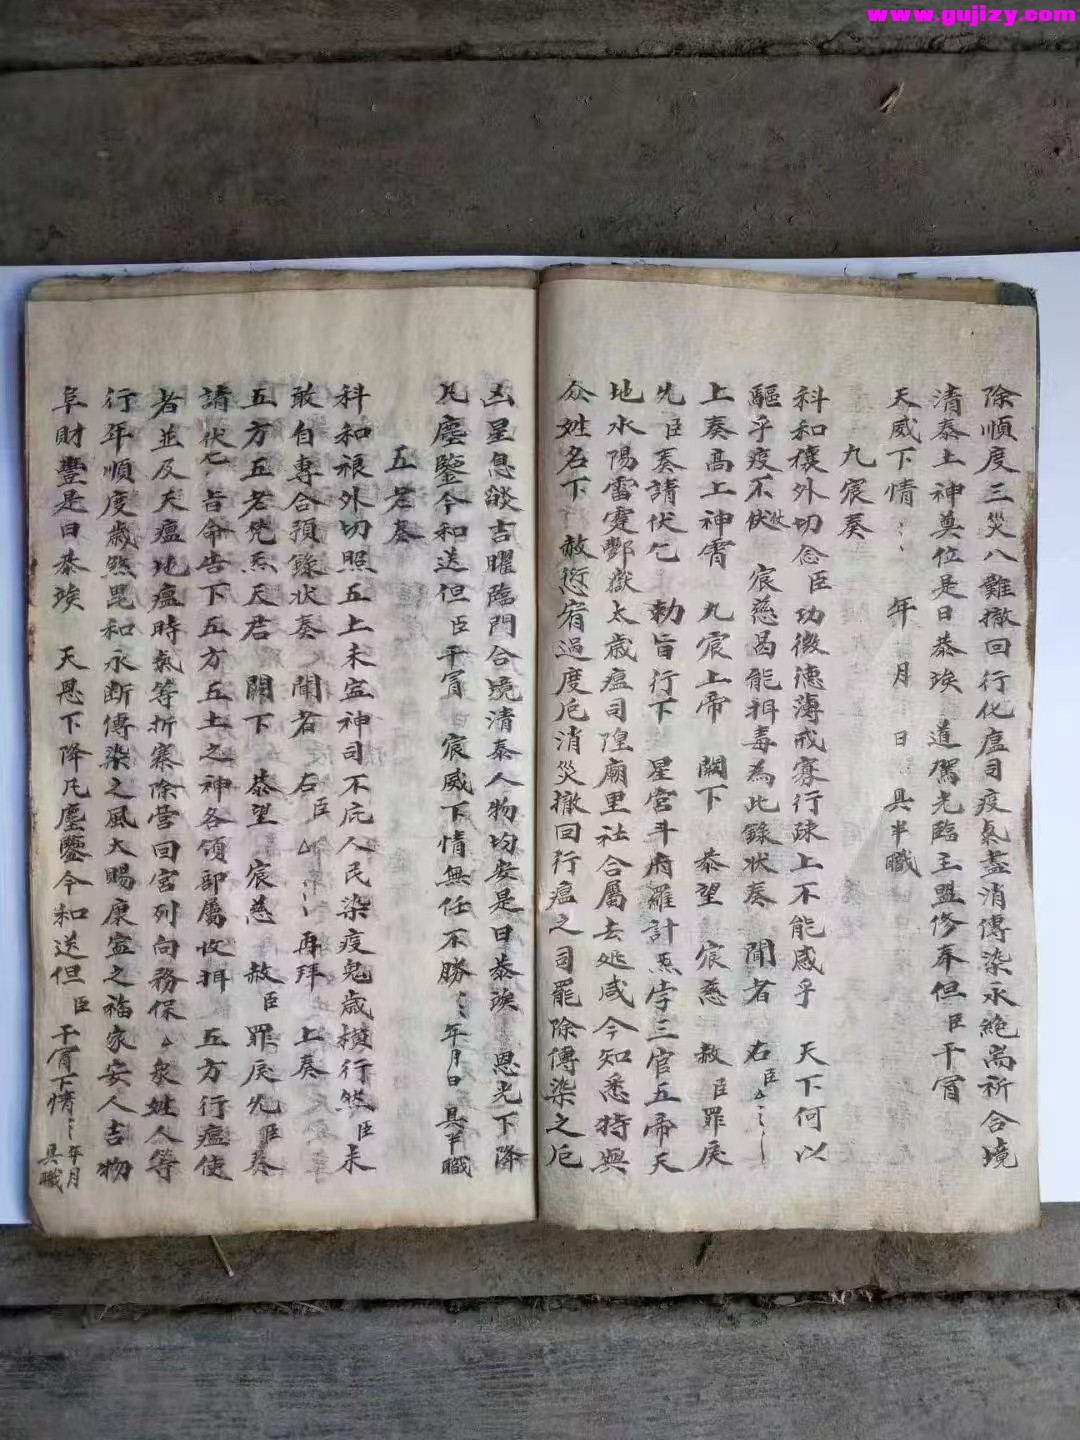 www.gujizy.com
除順度三災八難撤回行化瘟司疫氣盡消傳染永絕耑祈合境
清泰上神奠位是日恭竢 道駕光臨主盟修奉但臣干冒
天威下情〻 年 月 日具半職
九宸奏
科和穰外切念臣功微德薄戒寡行疎上不能感乎 天下何以
驅乎疫不伏 宸慈曷能捐毒為此錄狀奏 聞者 右臣厶〻〻
上奏高上神霄 九宸上帝 闕下 恭望 宸慈 赦臣罪戾
允臣奏請伏乞 勅旨行下 星宮斗府羅計炁孛三官五帝天
地水陽雷霆酆嶽太歲瘟司隍廟里社合屬去處咸令知悉特與
众姓名下 赦愆宥過度厄消災撤回行瘟之司罷除傳染之厄
凶星息燄吉曜臨門合境清泰人物均安是日恭竢 恩光下降
凡塵鑒今和送但臣干冒 宸威下情無任不勝〻 年月日具半職
五老奏
科和禳外切照五上未宣神司不庇人民染疫鬼歲橫行然臣未
敢自專合預錄狀奏 聞者 右臣厶〻 再拜 上奏
五方五老梵炁天君 闕下 恭望 宸慈 赦臣罪戾允臣奏
請伏乞 旨命告下五方五土之神各領部屬收捐 五方行瘟使
者並及天瘟地瘟時氣等折寨除營回宮列向務保厶众姓人等
行年順度歲煞毘和永斷傳染之風大賜康寧之福家安人吉物
阜財豐是日恭竢 天恩下降凡塵鑒今和送但臣干冒下情〻年月
具職